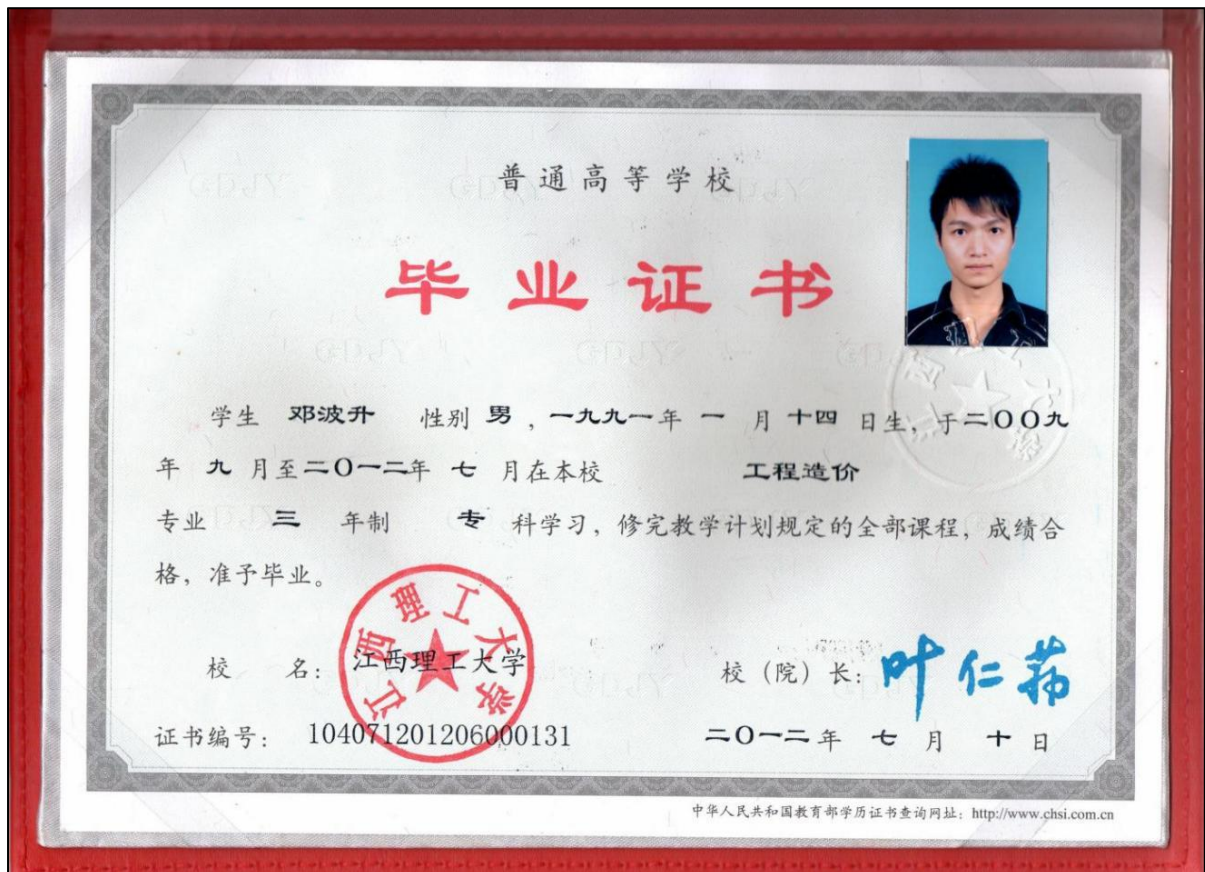 普通高等学校
毕业证书
学生 邓波升 性别 男 ，一九九一年 一 月 十四 日生，于二〇〇九
年 九 月至二〇一二年 七 月在本校 工程造价
专业 三 年制 专 科学习，修完教学计划规定的全部课程，成绩合
格，准予毕业。
江西理工大学
校 名：江西理工大学
校（院）长：叶仁荪
证书编号： 104071201206000131
二〇一二年 七 月 十 日
中华人民共和国教育部学历证书查询网址：http://www.chsi.com.cn